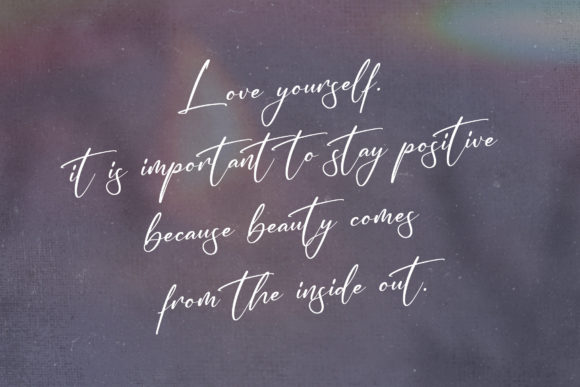 Love yourself.
it is important to stay positive
because beauty comes
from the inside out.